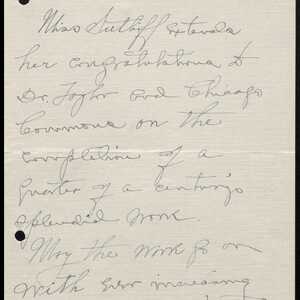 Miss Sutliff extends
her congratulations to
Dr. Taylor and Chicago
Commons on the
completion of a
quarter of a century's
splendid work.
May the work go on
with ever increasing